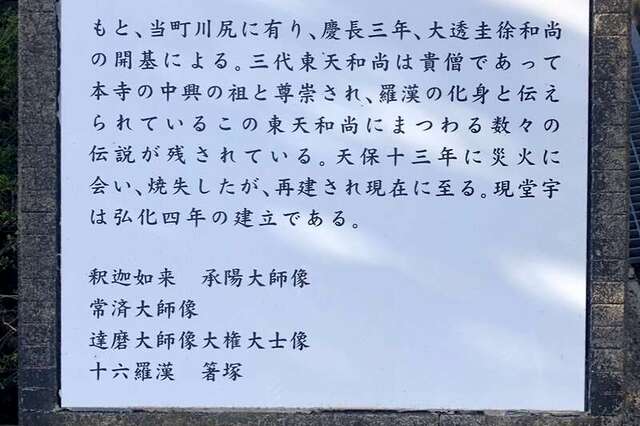 もと、当町川尻に有り、慶長三年、大透圭徐和尚
の開基による。三代東天和尚は貴僧であって
本寺の中興の祖と尊崇され、羅漢の化身と伝え
られているこの東天和尚にまつわる数々の
伝説が残されている。天保十三年に災火に
会い、焼失したが、再建され現在に至る。現堂宇
は弘化四年の建立である。
釈迦如来　承陽大師像
常済大師像
達磨大師像大権大士像
十六羅漢　箸塚